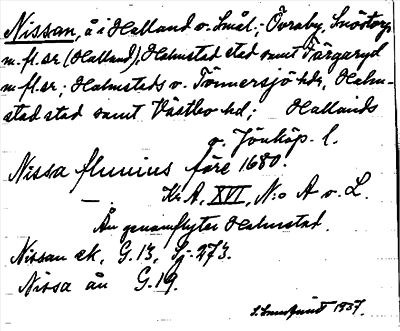 Nissan, å i Halland o. Smål.; Övraby, Snöstorp
m.fl. sr (Halland); Halmstad stad samt Färgaryd
m fl. sr; Halmstads o. Tönnersjö hdr, Halm-
stad stad samt Västbo hd; Hallands
o. Jönköp. l.
Nissa fluvius före 1680.
Kr. A, XVI, N:o A o. L.
Ån genomflyter Halmstad.
Nissan ek, G. 13, Sj. 273.
Nissa ån G. 19.
1937.